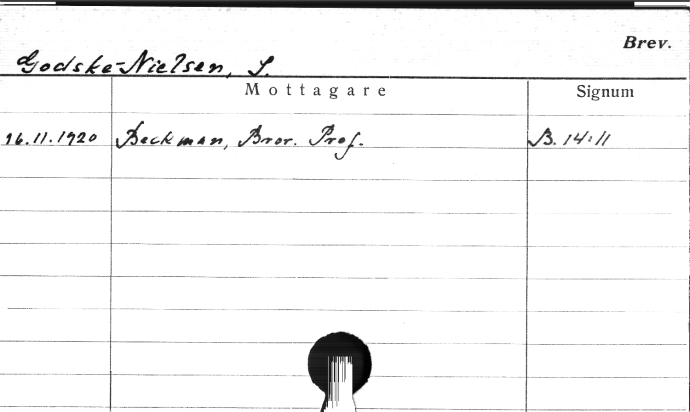 Brev.
Godske-Nielsen, S.
Mottagare Signum
16.11.1920 Beckman, Bror. Prof. B. 14:11